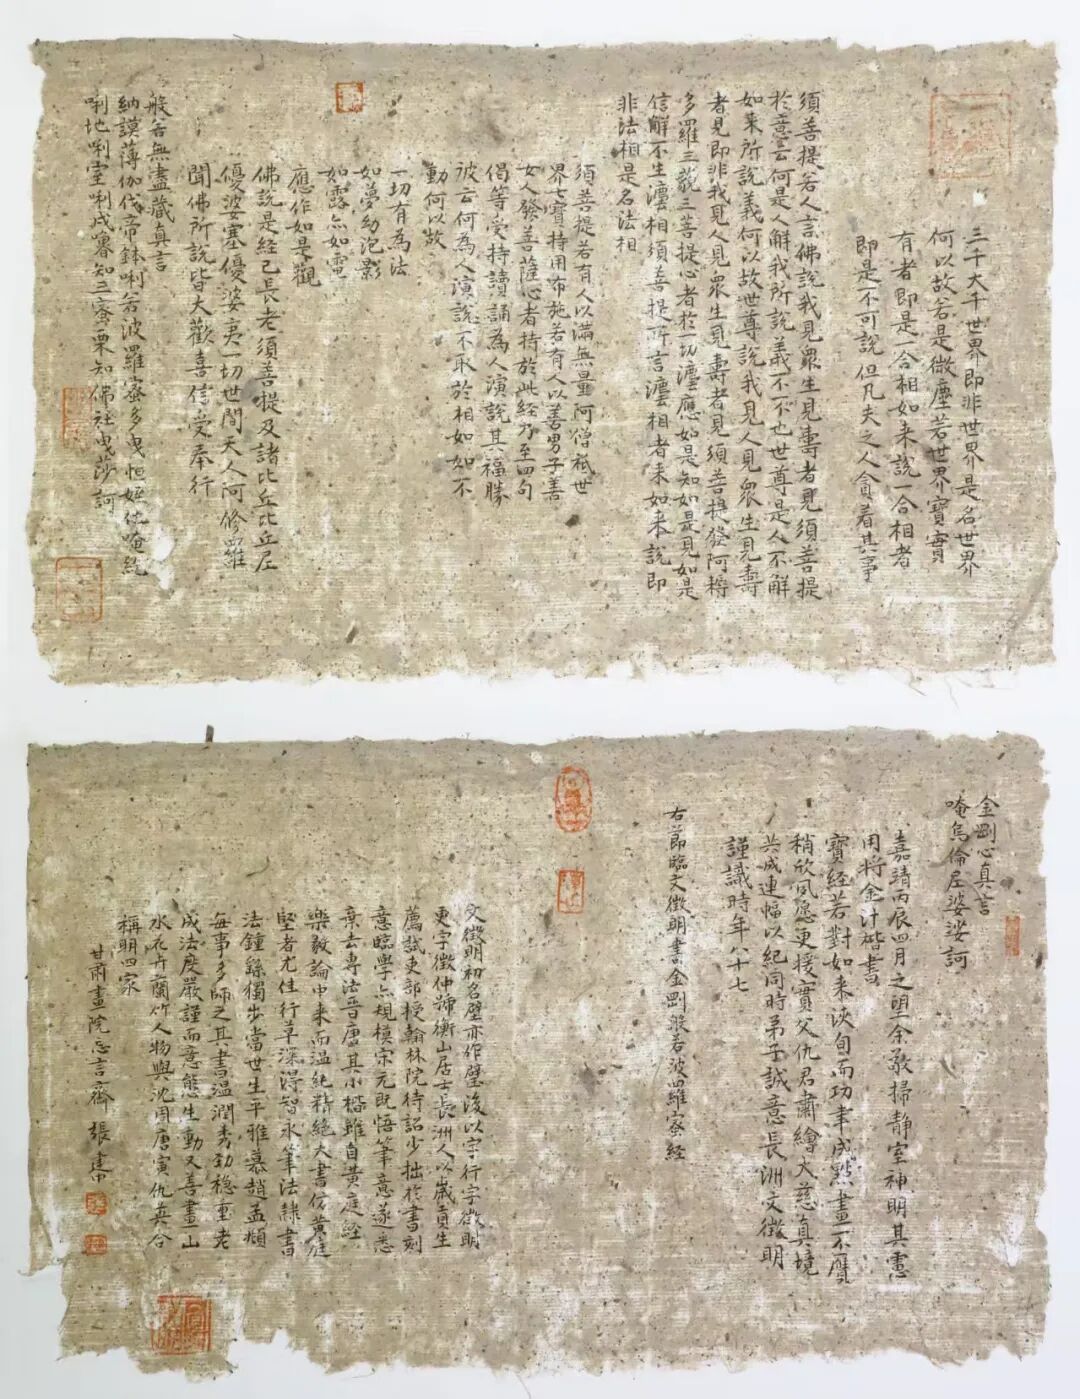 三千大千世界即非世界是名世界
何以故若是微塵若世界寶實
有者即是一合相如来說一合相者
即是不可說但凡夫之人貪着其事
須菩提若人言佛說我見眾生見壽者見須菩提
於意云何是人解我所說義不不也世尊是人不解
如来所說義何以故世尊說我見人見眾生見壽
者見即非我見人見眾生見壽者見須菩提發阿耨
多羅三藐三菩提心者於一切灋應如是知如是見如是
信解不生灋相須菩提所言灋相者来如来說即
非法相是名法相
須菩提若有人以滿無量阿僧祇世
界七寶持用布施若有人以善男子善
女人發菩薩心者持於此經乃至四句
偈等受持讀誦為人演說其福勝
彼云何為人演說不取於相如如不
動何以故
一切有為法
如夢幻泡影
如露亦如電
應作如是觀
佛說是經已長老須菩提及諸比丘比丘尼
優婆塞優婆夷一切世間天人阿修羅
聞佛所說皆大歡喜信受奉行
般若無盡藏真言
納謨薄伽伐帝鉢唎若波羅蜜多曳怛姪他唵紇
唎地唎室唎戍嚕知三蜜栗知佛社曳莎訶
金剛心真言
唵烏倫尼娑婆訶
嘉靖丙辰四月之望余敬掃静室神明其慮
用将金汁楷書
寶經若對如来浹旬而功事成點畫一不贗
稍欣夙愿更援實父仇君肅繪大慈真境
共成連幅以紀同時弟子誠意長洲文徵明
謹識時年八十七
右節臨文徵明書金剛般若波羅蜜經
文徵明初名壁亦作璧後以字行字徵明
更字徵仲號衡山居士長洲人以歲貢生
薦試吏部授翰林院待詔少拙於書刻
意臨學亦規模宋元既悟筆意遂悉
棄去專法晋唐其小楷雖自黄庭經
樂毅論中来而温純精絕大書仿黄庭
堅者尤佳行草深得智永筆法隸書
法鍾繇獨步當世生平雅慕趙孟頫
每事多師之其書温潤秀劲穏重老
成法度嚴謹而意態生動又善畫山
水花卉蘭竹人物與沈周唐寅仇英合
稱明四家
甘肅畫院忘言齋張建中